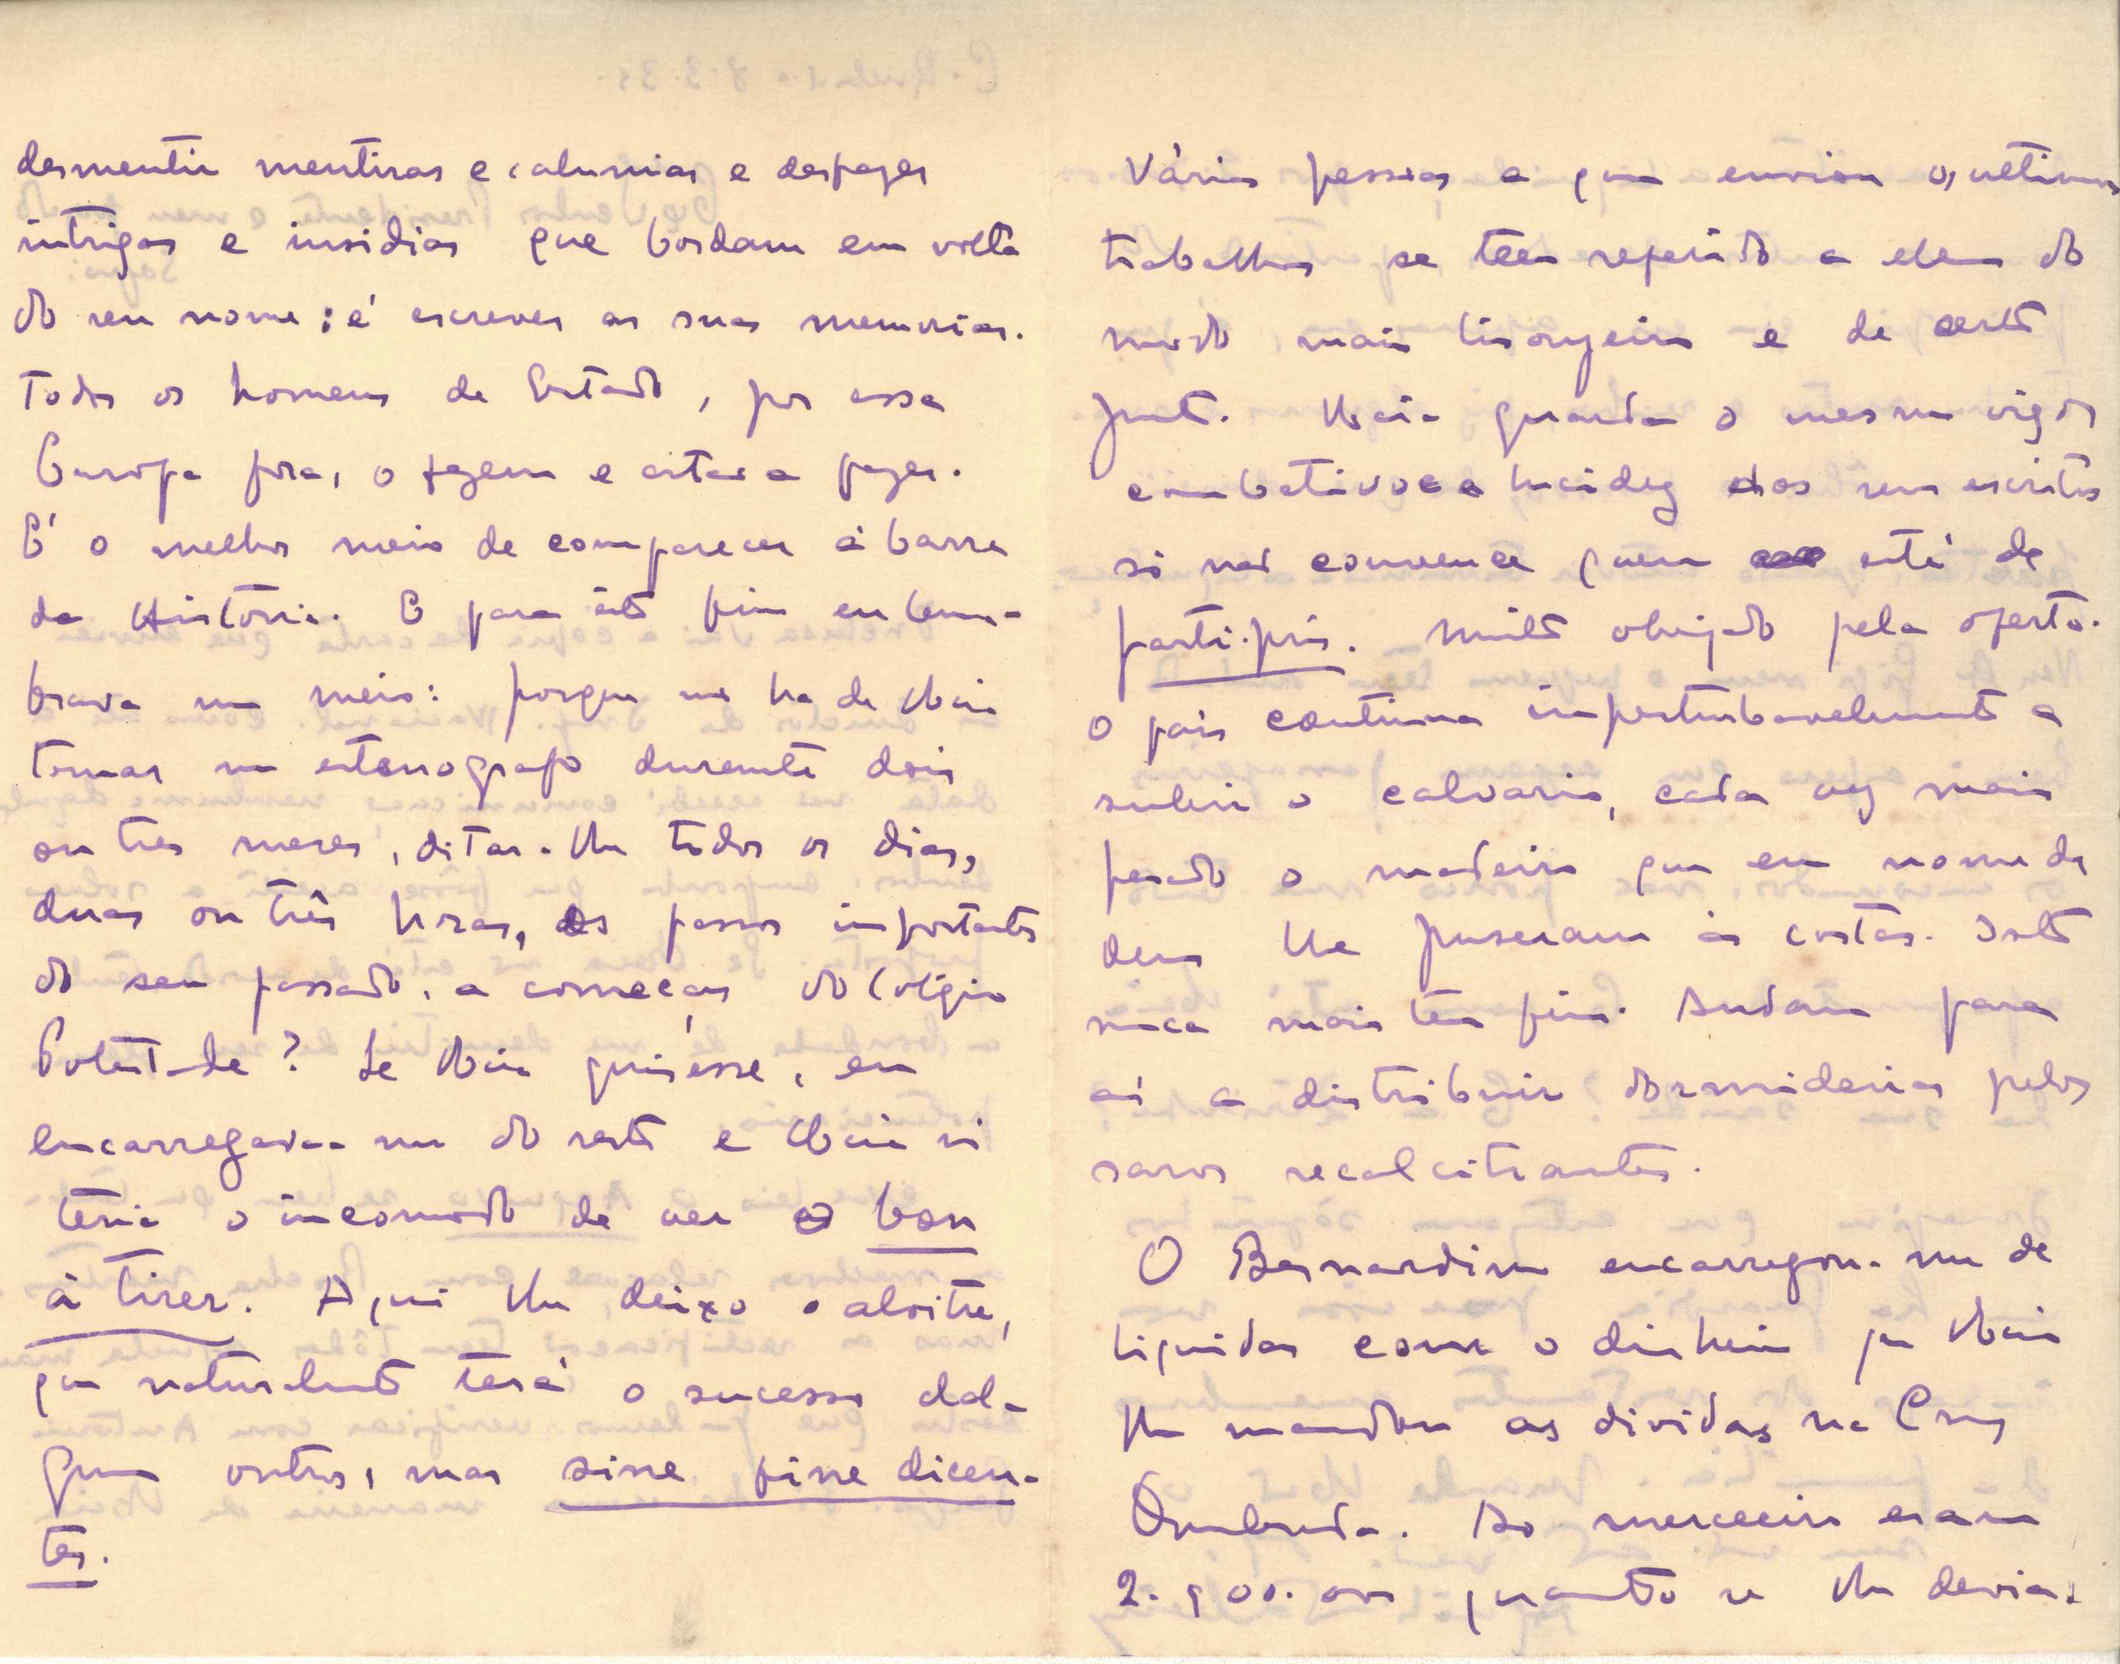 desmentir mentiras e calunias e desfazer
intrigas e insidias que bordam em volta
do seu nome: é escrever as suas memorias.
Todos os homens de Estado, por essa
Europa fora, o fazem e estão a fazer.
É o melhor meio de comparecer à barra
da História. E para êsto fim eu lem-
brava um meio: porque não ha de V. Exia
tomar um estenografo durante dois
ou tres meses, ditar-lhe todos os dias,
duas ou três horas, os passos importantes
do seu passado, a começar do Colégio
? Se V. Exia quisésse, eu
encarregava-me do resto e V. Exia só
teria o incomodo de ver o bon
à tirer. Aqui lhe deixo o alvitre,
que naturalmente terá o sucesso dal-
guns outros, mas sine fine dicen-
tes.
Várias pessoas a quem enviou os ultimos
trabalhos se teem referido a eles do
modo mais lisonjeiro e de certo
justo. V. Exia guarda o mesmo vigor
combativo e a lucidez dos seus escritos
só não convence quem está de
parti-pris. Muito obrigado pela oferta.
O país continua imperturbavelmente a
subir o calvario, cada vez mais
pesado o madeiro que em nome de
deus lhe puseram ás costas. Isto
nunca mais tem fim. Andam para
aí a distribuir dormideiras pelos
saros recalcitrantes.
O Bernardino encarregou-me de
liquidar com o dinheiro que V. Exia
lhe mandou as dividas na Cruz
Quebrada. Ao merceeiro eram
2.900. era quanto se lhe devia.